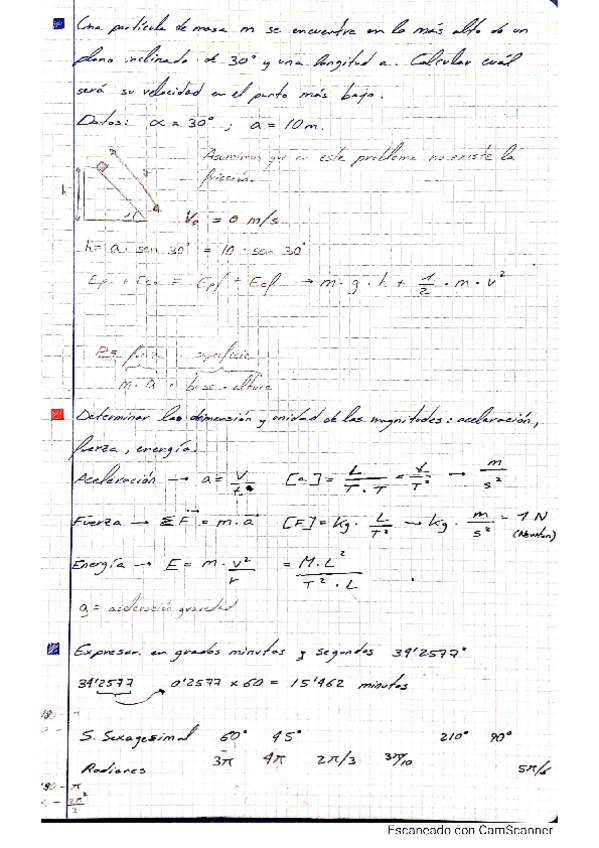 Una partícula de masa m se encuentra en lo más alto de un
plano inclinado de 30° y una longitud a. Calcular cuál
será su velocidad en el punto más bajo.
Datos: α = 30° ; a = 10 m.
Asumimos que en este problema no existe la
fricción.
h
V₀ = 0 m/s
h = a · sen 30° = 10 · sen 30°
Ep₀ + Ec₀ = Epf + Ecf → m · g · h + 1/2 · m · v²
superficie
m · a · base · altura
Determinar las dimensión y unidad de las magnitudes: aceleración,
fuerza, energía.
Aceleración → a = V/t [a] = L/T · T = L/T² → m/s²
Fuerza → ΣF = m · a [F] = Kg · L/T² → Kg · m/s² = 1 N
(Newton)
Energía → E = m · v²/r = M · L²/T² · L
g = aceleración gravedad
Expresar en grados minutos y segundos 39'2577°
39'2577 0'2577 x 60 = 15'462 minutos
S. Sexagesimal 60° 45° 210° 90°
Radianes 3π 4π 2π/3 3π/10 5π/6
Escaneado con CamScanner